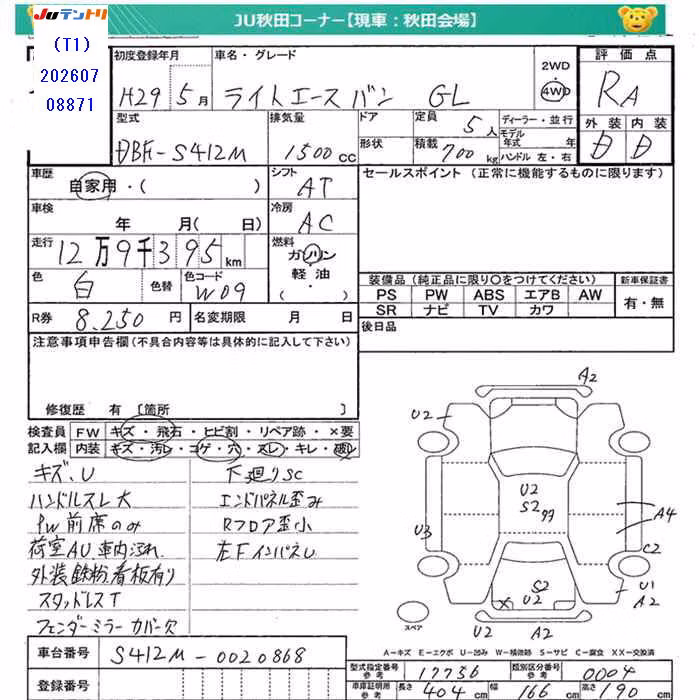 JUテントリ
JU秋田コーナー【現車：秋田会場】
(T1)
202607
08871
初度登録年月 車名・グレード
H29 5月 ライトエース バン GL
2WD
4WD
評価点
RA
外装 内装
D D
型式 排気量 ドア 定員 5人 ディーラー・並行
DBF-S412M 1500cc
形状 積載 700kg モデル年式 年
ハンドル 左・右
車歴 自家用・( )
シフト AT
セールスポイント（正常に機能するものに限ります）
車検 年 月( 日)
冷房 AC
走行 12万9千395km
燃料 ガソリン
軽油
・( )
色 白 色替 色コード W09
装備品（純正品に限り〇をつけてください） 新車保証書
PS PW ABS エアB AW 有・無
SR ナビ TV カワ
R券 8,250円 名変期限 月 日
後日品
注意事項申告欄（不具合内容等は具体的に記入して下さい）
修復歴 有 [箇所 ]
検査員 FW キズ・飛石・ヒビ割・リペア跡・×要
記入欄 内装 キズ・汚レ・コゲ・穴・スレ・キレ・破レ
キズ、U 下廻りSC
ハンドルスレ大 エンドパネル歪み
PW前席のみ Rフロア歪小
荷室AU 車内汚れ 左FインパネU
外装鉄粉看板有り
スタッドレスT
フェンダーミラーカバー欠
A2
U2
U2
S2
99
U3
A4
C2
S2
U2
U1
A2
U2 A2
スペア
A－キズ E－エクボ U－凹み W－補修跡 S－サビ C－腐食 XX－交換済
車台番号 S412M-0020868
登録番号
型式指定番号 参考 17756 類別区分番号 参考 0004
車庫証明用 参考 長さ 404cm 幅 166cm 高さ 190cm